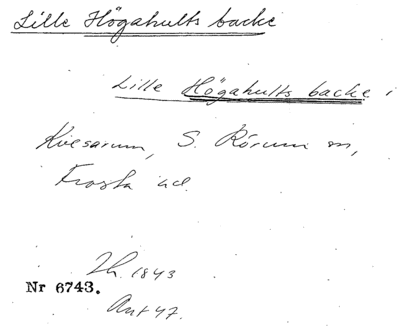 Lille Högahults backe
Lille Högahults backe i
Kvesarum, S. Rörum sn,
Frosta hd.
Lh. 1843
Nr 6743.
Ant 47.